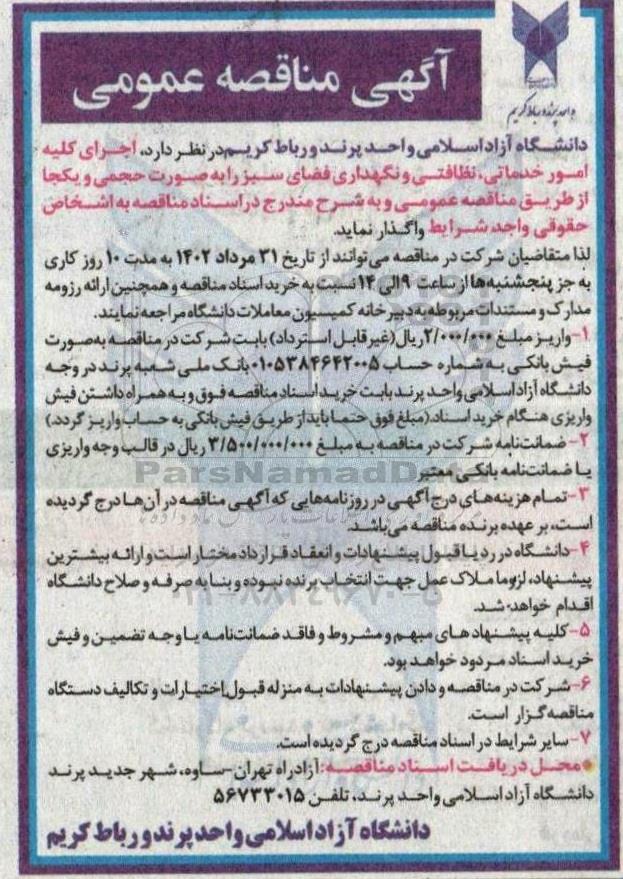 آگهی مناقصه عمومی
واحد پرند و رباط کریم
دانشگاه آزاد اسلامی واحد پرند و رباط کریم در نظر دارد، اجرای کلیه
امور خدماتی، نظافتی و نگهداری فضای سبز را به صورت حجمی و یکجا
از طریق مناقصه عمومی و به شرح مندرج در اسناد مناقصه به اشخاص
حقوقی واجد شرایط واگذار نماید.
لذا متقاضیان شرکت در مناقصه می‌توانند از تاریخ ۳۱ مرداد ۱۴۰۲ به مدت ۱۰ روز کاری
به جز پنجشنبه‌ها از ساعت ۹ الی ۱۴ نسبت به خرید اسناد مناقصه و همچنین ارائه رزومه
مدارک و مستندات مربوطه به دبیرخانه کمیسیون معاملات دانشگاه مراجعه نمایند.
۱-واریز مبلغ ۲/۰۰۰/۰۰۰ریال (غیرقابل استرداد) بابت شرکت در مناقصه به‌صورت
فیش بانکی به شماره حساب ۰۱۰۵۳۸۴۶۴۲۰۰۵ بانک ملی شعبه پرند در وجه
دانشگاه آزاد اسلامی واحد پرند بابت خرید اسناد مناقصه فوق و به همراه داشتن فیش
واریزی هنگام خرید اسناد. (مبلغ فوق حتما باید از طریق فیش بانکی به حساب واریز گردد.)
۲- ضمانت‌نامه شرکت در مناقصه به مبلغ ۳/۵۰۰/۰۰۰/۰۰۰ ریال در قالب وجه واریزی
یا ضمانت‌نامه بانکی معتبر
ParsNamadData
۳-تمام هزینه‌های درج آگهی در روزنامه‌هایی که آگهی مناقصه در آن‌ها درج گردیده
است، بر عهده برنده مناقصه می‌باشد.
۴-دانشگاه در رد یا قبول پیشنهادات و انعقاد قرارداد مختار است و ارائه بیشترین
پیشنهاد، لزوما ملاک عمل جهت انتخاب برنده نبوده و بنا به صرفه و صلاح دانشگاه
اقدام خواهد شد.
۵-کلیه پیشنهادهای مبهم و مشروط و فاقد ضمانت‌نامه یا وجه تضمین و فیش
خرید اسناد مردود خواهد بود.
۶-شرکت در مناقصه و دادن پیشنهادات به منزله قبول اختیارات و تکالیف دستگاه
مناقصه‌گزار است.
۷-سایر شرایط در اسناد مناقصه درج گردیده است.
*محل دریافت اسناد مناقصه: آزادراه تهران-ساوه، شهر جدید پرند
دانشگاه آزاد اسلامی واحد پرند، تلفن ۵۶۷۳۳۰۱۵
دانشگاه آزاد اسلامی واحد پرند و رباط کریم